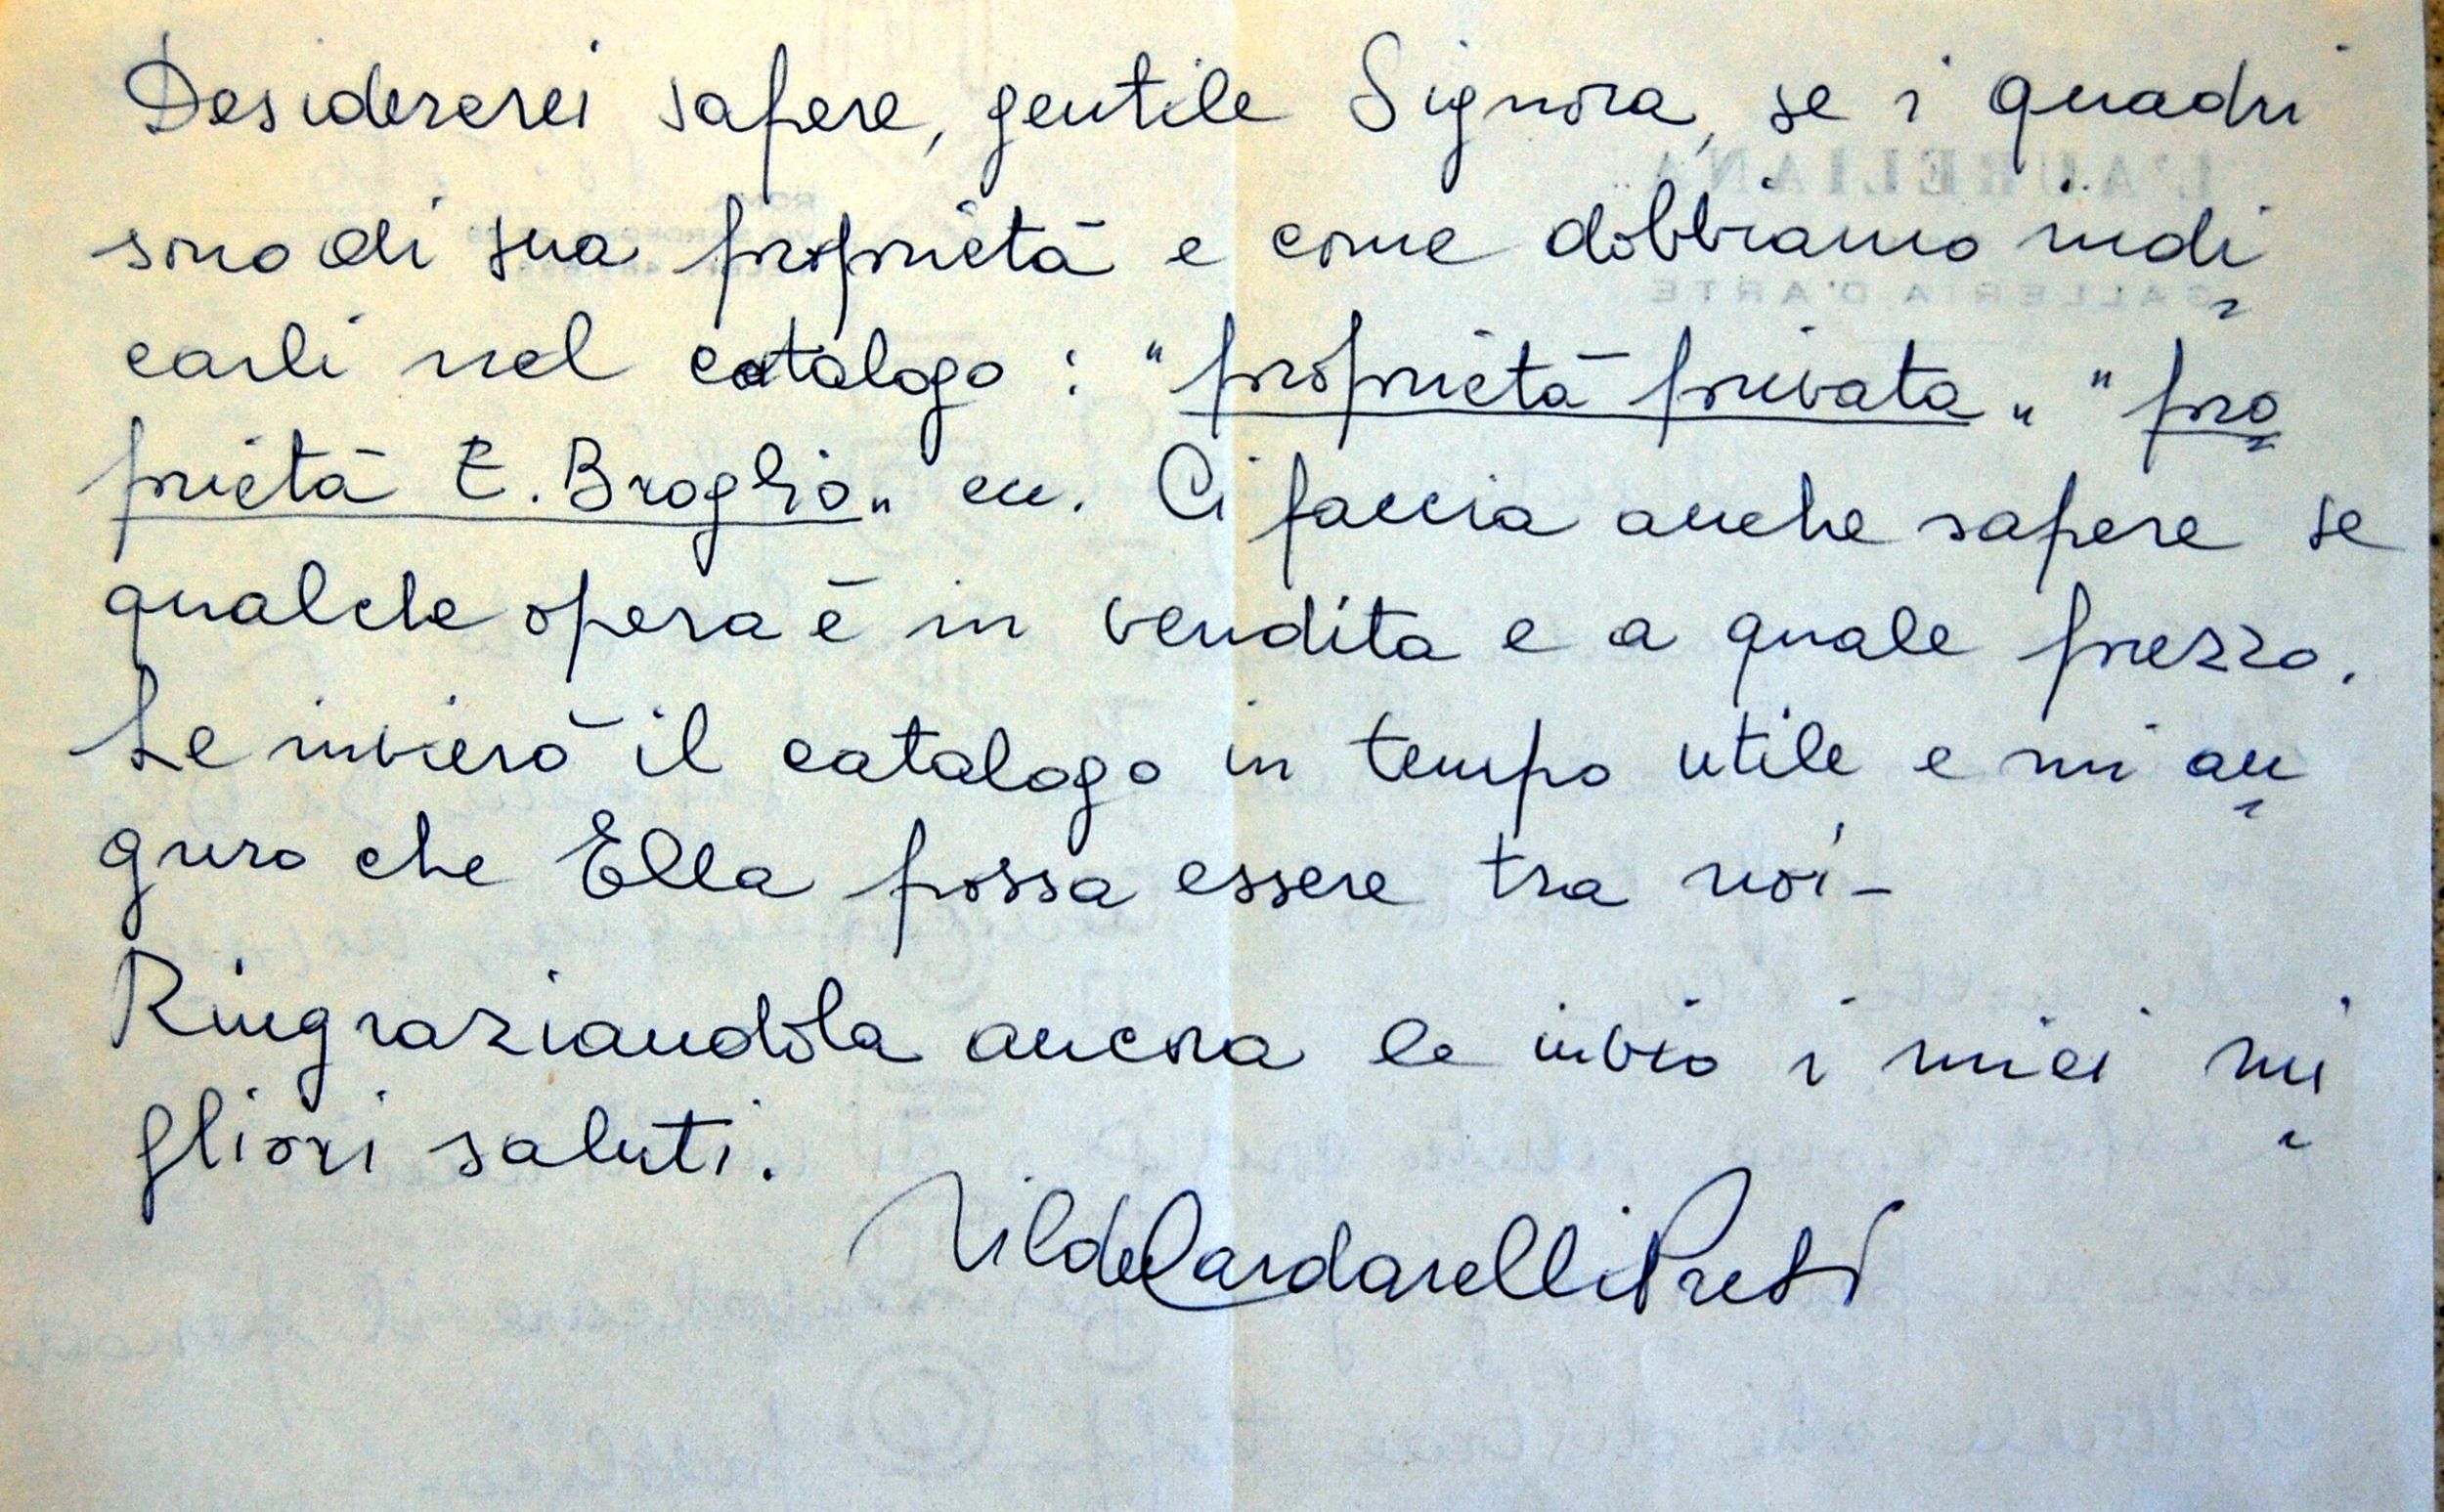 Desidererei sapere, gentile Signora, se i quadri
sono di sua proprietà e come dobbiamo indi
carli nel catalogo : "proprietà privata" "pro
prietà E. Broglio" ecc. Ci faccia anche sapere se
qualche opera è in vendita e a quale prezzo.
Le invierò il catalogo in tempo utile e mi au
guro che Ella possa essere tra noi -
Ringraziandola ancora le invio i miei mi
gliori saluti.
Cardarelli
L'AURELIANA
GALLERIA D'ARTE